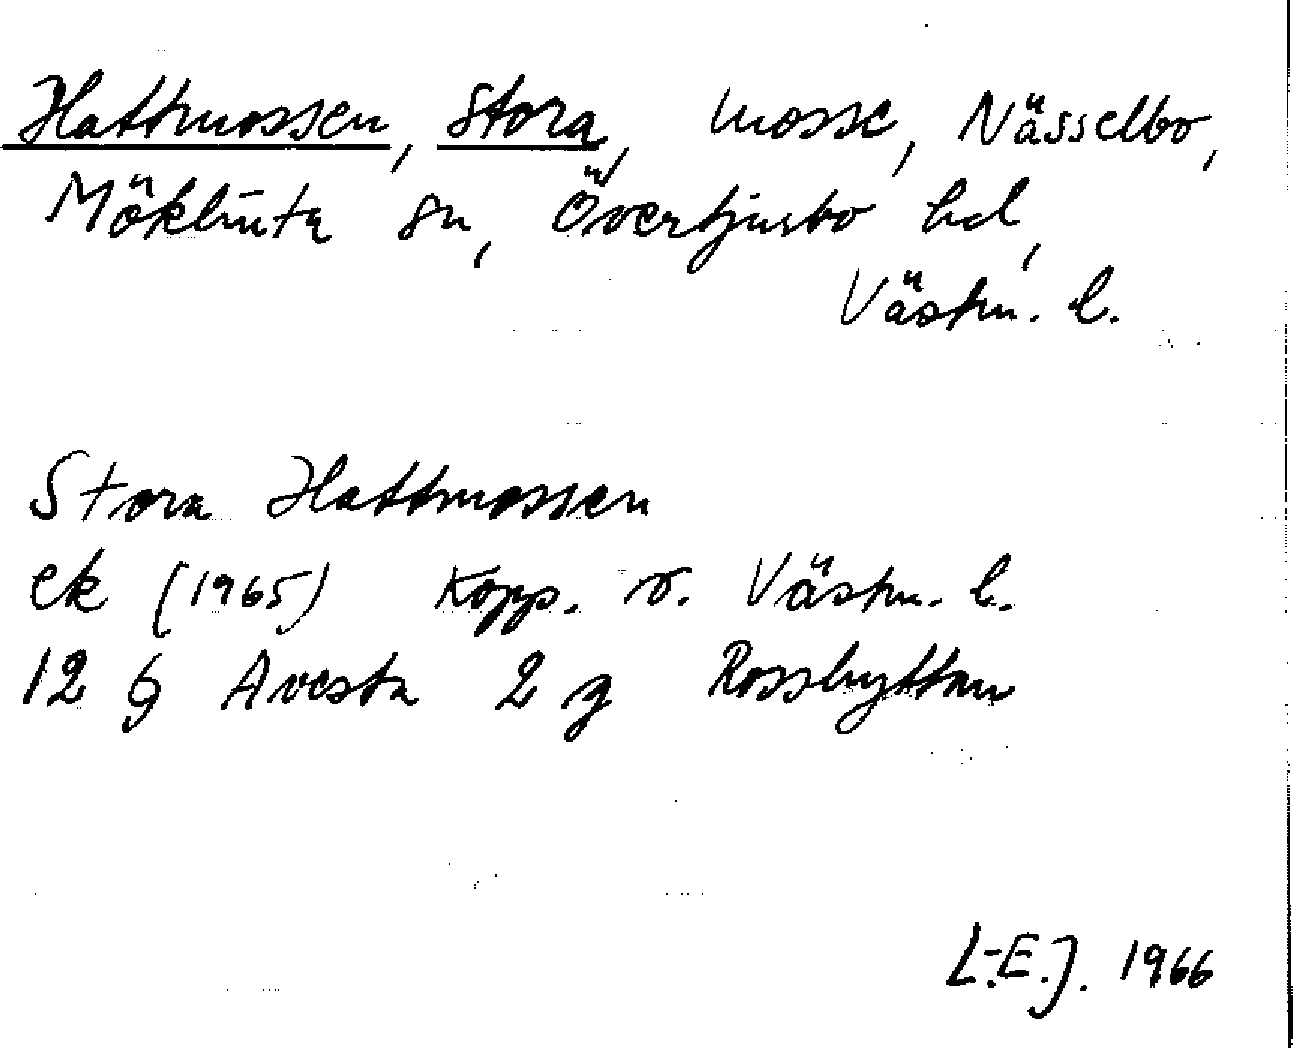 Hattmossen, Stora, mosse, Nässelbo,
Möklinta sn, Övertjurbo hd,
Västm. l.
Stora Hattmossen
ek (1965) Kopp. o. Västm. l.
12 G Avesta 2 g Rosshyttan
L.-E.J. 1966